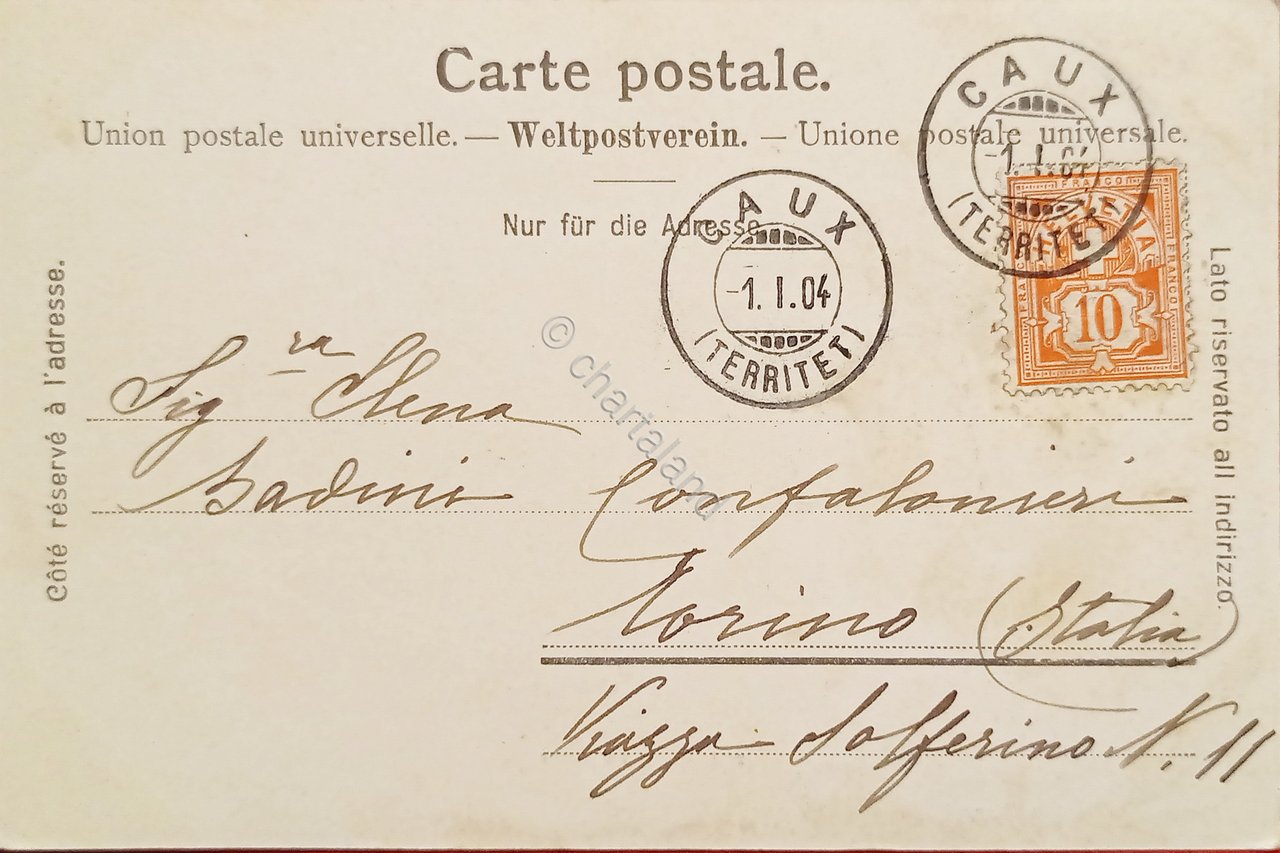 Carte postale.
Union postale universelle. — Weltpostverein. — Unione postale universale.
Nur für die Adresse
CAUX
-1. I. 04
(TERRITET)
CAUX
-1. I. 04
(TERRITET)
FRANCO
HELVETIA
FRANCO
FRANCO
10
Côté réservé à l'adresse.
Lato riservato all indirizzo.
Sigra Elena
Badini Confalonieri
Torino (Italia)
Piazza Solferino N. 11
© chartaland